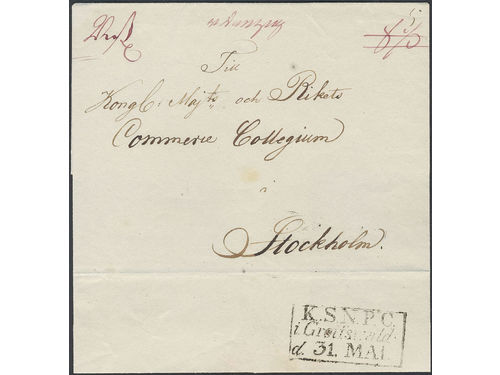 Till
Kongl: Maj:ts och Rikets
Commerce Collegium
i
Stockholm.
K.S.N.P.C.
i Greifswald.
d. 31. MAI.